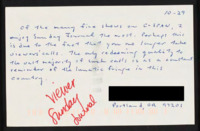 10-29
Of the many fine shows on C-SPAN, I
enjoy Sunday Journal the most. Perhaps this
is due to the fact that you no longer take
viewers calls. The only redeeming quality to
the vast majority of such calls is as a constant
reminder of the lunatic fringe in this
country.
Viewer
Sunday
Journal
Portland, OR 97201